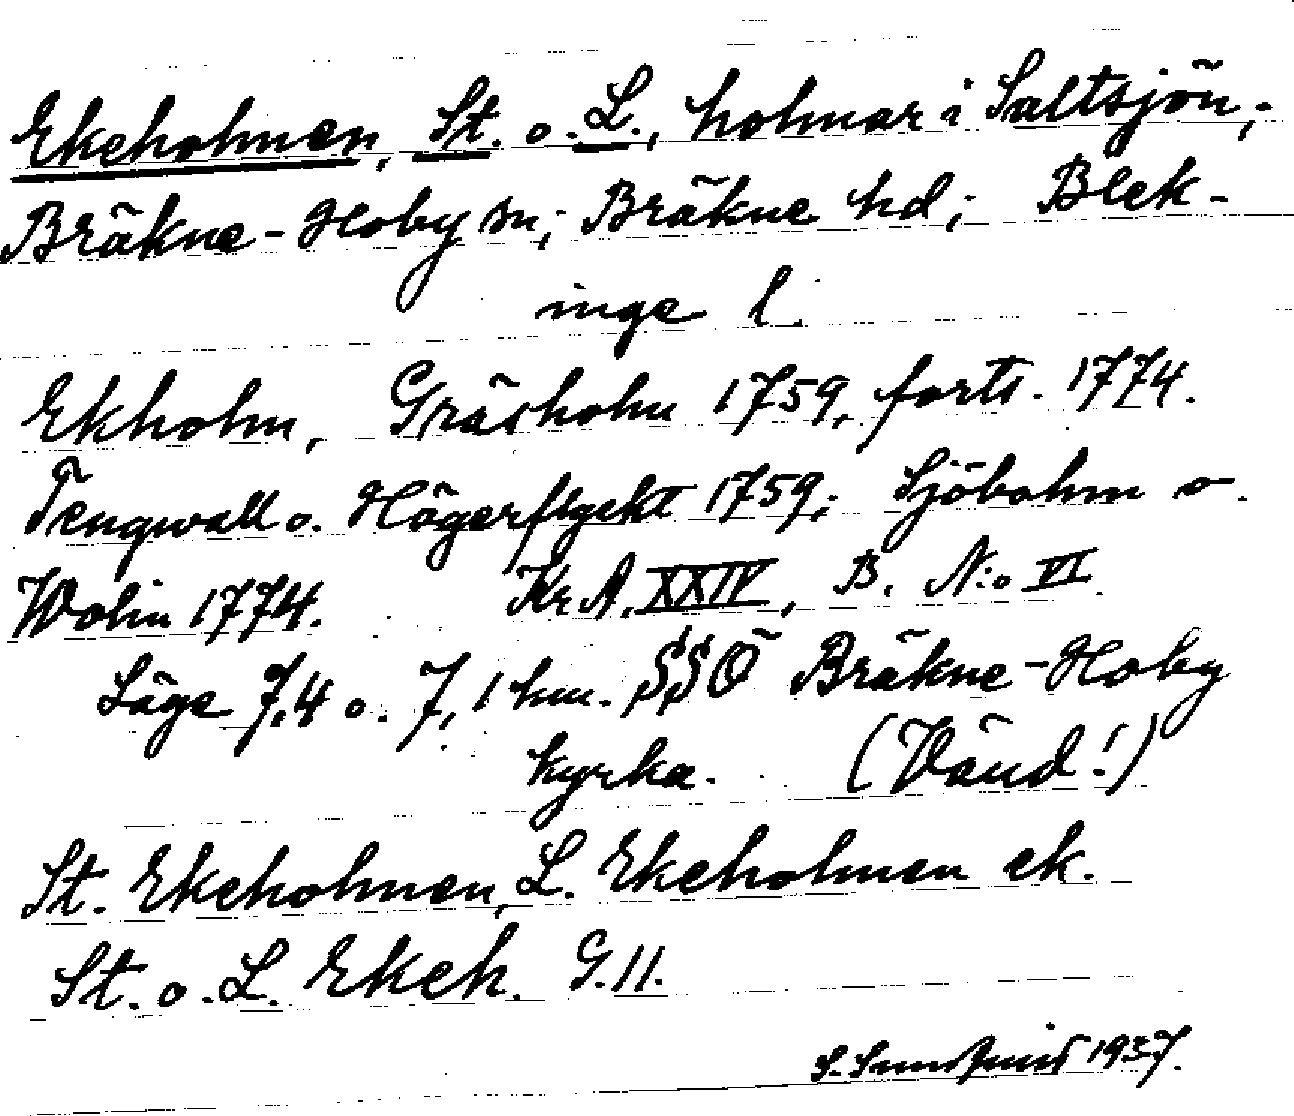 Ekeholmen, St. o. L., holmar i Saltsjön;
Bräkne-Hoby sn; Bräkne hd; Blek-
inge l.
Ekholm, Gräsholm 1759, forts. 1774.
Tengwall o. Högerflyckt 1759; Sjöbohm o.
Wolin 1774. Kr A. XXIV, B. N:o VI
Läge 7,4 o. 7,1 km. SSÖ Bräkne-Hoby
kyrka. (Vänd!)
St. Ekeholmen, L. Ekeholmen ek.
St. o. L. Ekeh. G. 11.
S. Sundquist 1937.